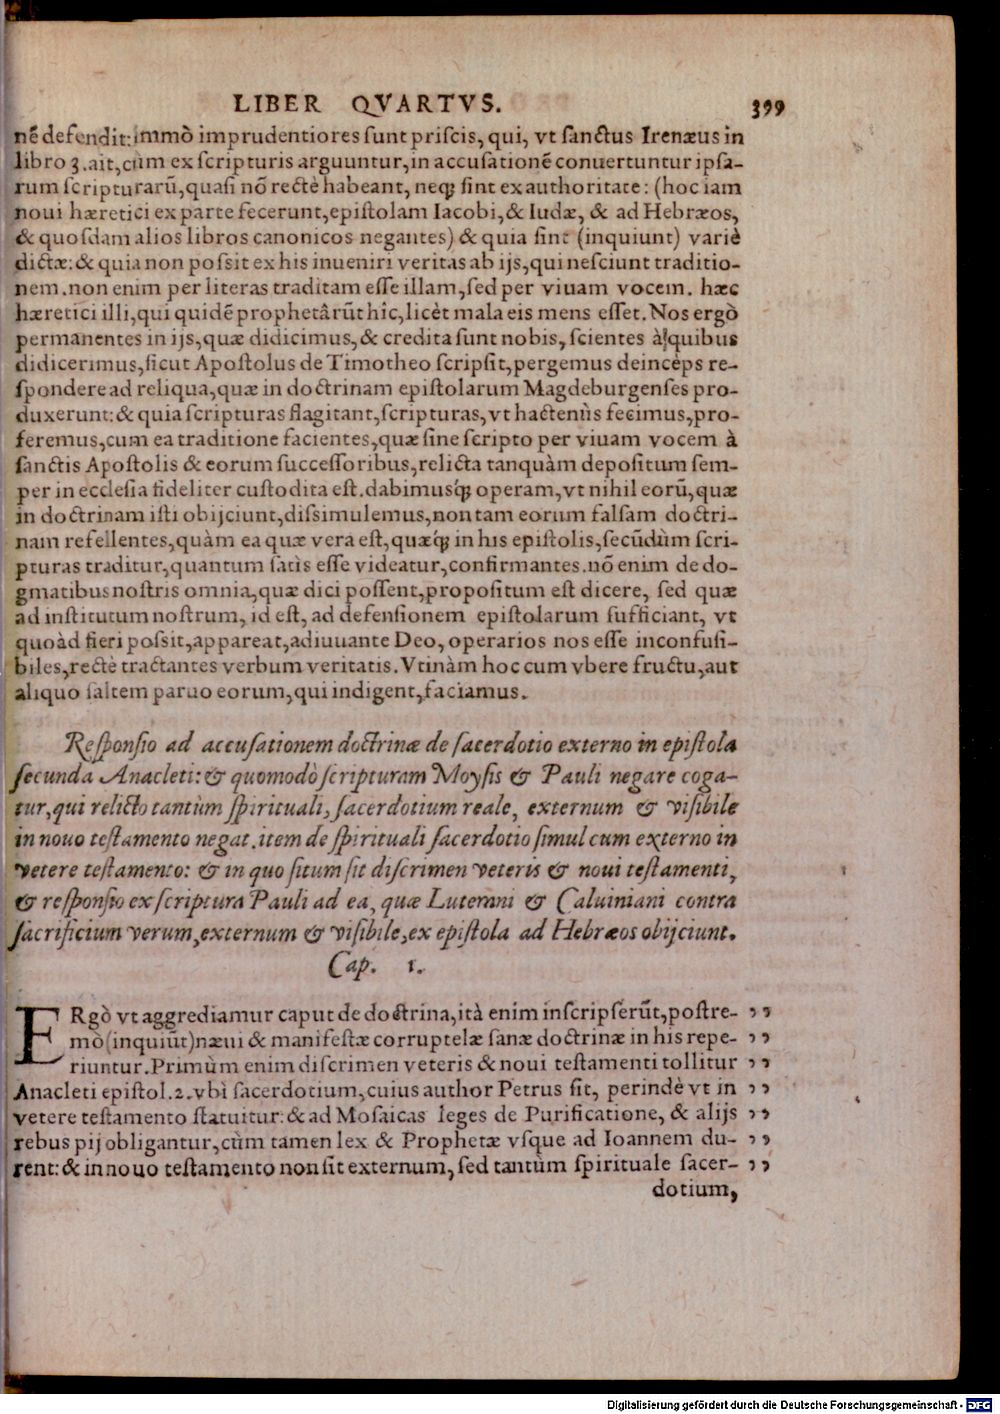 LIBER QVARTVS. 399
nē defendit: immò imprudentiores sunt priscis, qui, vt sanctus Irenæus in
libro 3. ait, cùm ex scripturis arguuntur, in accusationē conuertuntur ipsa-
rum scripturarū, quasi nō rectè habeant, neq; sint ex authoritate: (hoc iam
noui hæretici ex parte fecerunt, epistolam Iacobi, & Iudæ, & ad Hebræos,
& quosdam alios libros canonicos negantes) & quia sint (inquiunt) variè
dictæ: & quia non possit ex his inueniri veritas ab ijs, qui nesciunt traditio-
nem. non enim per literas traditam esse illam, sed per viuam vocem. hæc
hæretici illi, qui quidē prophetârūt hîc, licèt mala eis mens esset. Nos ergò
permanentes in ijs, quæ didicimus, & credita sunt nobis, scientes à quibus
didicerimus, sicut Apostolus de Timotheo scripsit, pergemus deincéps re-
spondere ad reliqua, quæ in doctrinam epistolarum Magdeburgenses pro-
duxerunt: & quia scripturas flagitant, scripturas, vt hactenùs fecimus, pro-
feremus, cum ea traditione facientes, quæ sine scripto per viuam vocem à
sanctis Apostolis & eorum successoribus, relicta tanquàm depositum sem-
per in ecclesia fideliter custodita est. dabimusq́; operam, vt nihil eorū, quæ
in doctrinam isti obijciunt, dissimulemus, non tam eorum falsam doctri-
nam refellentes, quàm ea quæ vera est, quæq́; in his epistolis, secūdùm scri-
pturas traditur, quantum satis esse videatur, confirmantes. nō enim de do-
gmatibus nostris omnia, quæ dici possent, propositum est dicere, sed quæ
ad institutum nostrum, id est, ad defensionem epistolarum sufficiant, vt
quoàd fieri possit, appareat, adiuuante Deo, operarios nos esse inconfusi-
biles, rectè tractantes verbum veritatis. Vtinàm hoc cum vbere fructu, aut
aliquo saltem paruo eorum, qui indigent, faciamus.
Responsio ad accusationem doctrinæ de sacerdotio externo in epistola
secunda Anacleti: & quomodò scripturam Moysis & Pauli negare coga-
tur, qui relicto tantùm spirituali, sacerdotium reale, externum & visibile
in nouo testamento negat. item de spirituali sacerdotio simul cum externo in
vetere testamento: & in quo situm sit discrimen veteris & noui testamenti,
& responsio ex scriptura Pauli ad ea, quæ Luterani & Caluiniani contra
sacrificium verum, externum & visibile, ex epistola ad Hebræos obijciunt.
Cap. 1.
ERgò vt aggrediamur caput de doctrina, ità enim inscripserūt, postre- ,,
mò (inquiūt) næui & manifestæ corruptelæ sanæ doctrinæ in his repe- ,,
riuntur. Primùm enim discrimen veteris & noui testamenti tollitur ,,
Anacleti epistol. 2. vbi sacerdotium, cuius author Petrus sit, perindè vt in ,,
vetere testamento statuitur: & ad Mosaicas leges de Purificatione, & alijs ,,
rebus pij obligantur, cùm tamen lex & Prophetæ vsque ad Ioannem du- ,,
rent: & in nouo testamento non sit externum, sed tantùm spirituale sacer- ,,
dotium,
Digitalisierung gefördert durch die Deutsche Forschungsgemeinschaft - DFG